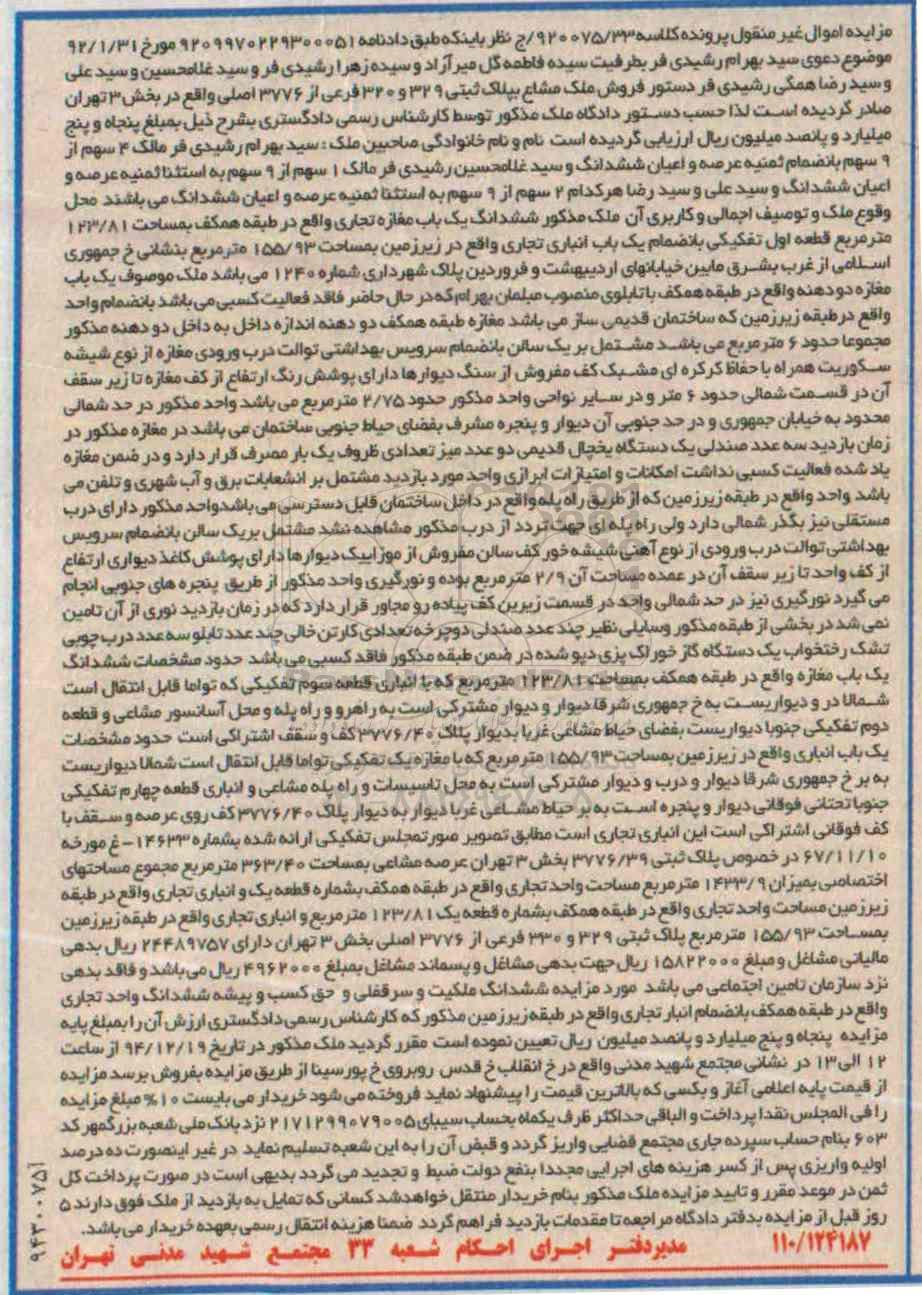 مزایده اموال غیر منقول پرونده کلاسه ۹۲۰۰۷۵/۳۳/ج نظر باینکه طبق دادنامه ۹۲۰۹۹۷۰۲۲۹۳۰۰۰۵۱ مورخ ۹۲/۱/۳۱
موضوع دعوی سید بهرام رشیدی فر بطرفیت سیده فاطمه گل میرآزاد و سیده زهرا رشیدی فر و سید غلامحسین و سید علی
و سید رضا همگی رشیدی فر دستور فروش ملک مشاع بپلاک ثبتی ۳۲۹ و ۳۲۰ فرعی از ۳۷۷۶ اصلی واقع در بخش ۳ تهران
صادر گردیده است لذا حسب دستور دادگاه ملک مذکور توسط کارشناس رسمی دادگستری بشرح ذیل بمبلغ پنجاه و پنج
میلیارد و پانصد میلیون ریال ارزیابی گردیده است نام و نام خانوادگی صاحبین ملک : سید بهرام رشیدی فر مالک ۴ سهم از
۹ سهم بانضمام ثمنیه عرصه و اعیان ششدانگ و سید غلامحسین رشیدی فر مالک ۱ سهم از ۹ سهم به استثنا ثمنیه عرصه و
اعیان ششدانگ و سید علی و سید رضا هرکدام ۲ سهم از ۹ سهم به استثنا ثمنیه عرصه و اعیان ششدانگ می باشند محل
وقوع ملک و توصیف اجمالی و کاربری آن ملک مذکور ششدانگ یک باب مغازه تجاری واقع در طبقه همکف بمساحت ۱۲۳/۸۱
مترمربع قطعه اول تفکیکی بانضمام یک باب انباری تجاری واقع در زیرزمین بمساحت ۱۵۵/۹۳ مترمربع بنشانی خ جمهوری
اسلامی از غرب بشرق مابین خیابانهای اردیبهشت و فروردین پلاک شهرداری شماره ۱۲۴۰ می باشد ملک موصوف یک باب
مغازه دو دهنه واقع در طبقه همکف با تابلوی منصوب مبلمان بهرام که در حال حاضر فاقد فعالیت کسبی می باشد بانضمام واحد
واقع در طبقه زیرزمین که ساختمان قدیمی ساز می باشد مغازه طبقه همکف دو دهنه اندازه داخل به داخل دو دهنه مذکور
مجموعا حدود ۶ مترمربع می باشد مشتمل بر یک سالن بانضمام سرویس بهداشتی توالت درب ورودی مغازه از نوع شیشه
سکوریت همراه با حفاظ کرکره ای مشبک کف مفروش از سنگ دیوارها دارای پوشش رنگ ارتفاع از کف مغازه تا زیر سقف
آن در قسمت شمالی حدود ۶ متر و در سایر نواحی واحد مذکور حدود ۲/۷۵ مترمربع می باشد واحد مذکور در حد شمالی
محدود به خیابان جمهوری و در حد جنوبی آن دیوار و پنجره مشرف بفضای حیاط جنوبی ساختمان می باشد در مغازه مذکور در
زمان بازدید سه عدد صندلی یک دستگاه یخچال قدیمی دو عدد میز تعدادی ظروف یک بار مصرف قرار دارد و در ضمن مغازه
یاد شده فعالیت کسبی نداشت امکانات و امتیازات ابرازی واحد مورد بازدید مشتمل بر انشعابات برق و آب شهری و تلفن می
باشد واحد واقع در طبقه زیرزمین که از طریق راه پله واقع در داخل ساختمان قابل دسترسی می باشدواحد مذکور دارای درب
مستقلی نیز بگذر شمالی دارد ولی راه پله ای جهت تردد از درب مذکور مشاهده نشد مشتمل بریک سالن بانضمام سرویس
بهداشتی توالت درب ورودی از نوع آهنی شیشه خور کف سالن مفروش از موزاییک دیوارها دارای پوشش کاغذ دیواری ارتفاع
از کف واحد تا زیر سقف آن در عمده مساحت آن ۲/۹ مترمربع بوده و نورگیری واحد مذکور از طریق پنجره های جنوبی انجام
می گیرد نورگیری نیز در حد شمالی واحد در قسمت زیرین کف پیاده رو مجاور قرار دارد که در زمان بازدید نوری از آن تامین
نمی شد در بخشی از طبقه مذکور وسایلی نظیر چند عدد صندلی دوچرخه تعدادی کارتن خالی چند عدد تابلو سه عدد درب چوبی
تشک رختخواب یک دستگاه گاز خوراک پزی دپو شده در ضمن طبقه مذکور فاقد کسبی می باشد حدود مشخصات ششدانگ
یک باب مغازه واقع در طبقه همکف بمساحت ۱۲۳/۸۱ مترمربع که با انباری قطعه سوم تفکیکی که تواما قابل انتقال است
شمالا در و دیواریست به خ جمهوری شرقا دیوار و دیوار مشترکی است به راهرو و راه پله و محل آسانسور مشاعی و قطعه
دوم تفکیکی جنوبا دیواریست بفضای حیاط مشاعی غربا بدیوار پلاک ۳۷۷۶/۴۰ کف و سقف اشتراکی است حدود مشخصات
یک باب انباری واقع در زیرزمین بمساحت ۱۵۵/۹۳ مترمربع که با مغازه یک تفکیکی تواما قابل انتقال است شمالا دیواریست
به بر خ جمهوری شرقا دیوار و درب و دیوار مشترکی است به محل تاسیسات و راه پله مشاعی و انباری قطعه چهارم تفکیکی
جنوبا تحتانی فوقانی دیوار و پنجره است به بر حیاط مشاعی غربا دیوار به دیوار پلاک ۳۷۷۶/۴۰ کف روی عرصه و سقف با
کف فوقانی اشتراکی است این انباری تجاری است مطابق تصویر صورتمجلس تفکیکی ارائه شده بشماره ۱۴۶۳۳ – غ مورخه
۶۷/۱۱/۱۰ در خصوص پلاک ثبتی ۳۷۷۶/۳۹ بخش ۳ تهران عرصه مشاعی بمساحت ۳۶۳/۴۰ مترمربع مجموع مساحتهای
اختصاصی بمیزان ۱۴۳۳/۹ مترمربع مساحت واحد تجاری واقع در طبقه همکف بشماره قطعه یک و انباری تجاری واقع در طبقه
زیرزمین مساحت واحد تجاری واقع در طبقه همکف بشماره قطعه یک ۱۲۳/۸۱ مترمربع و انباری تجاری واقع در طبقه زیرزمین
بمساحت ۱۵۵/۹۳ مترمربع پلاک ثبتی ۳۲۹ و ۳۳۰ فرعی از ۳۷۷۶ اصلی بخش ۳ تهران دارای ۲۴۴۸۹۷۵۷ ریال بدهی
مالیاتی مشاغل و مبلغ ۱۵۸۲۲۰۰۰ ریال جهت بدهی مشاغل و پسماند مشاغل بمبلغ ۴۹۶۲۰۰۰ ریال می باشد و فاقد بدهی
نزد سازمان تامین اجتماعی می باشد مورد مزایده ششدانگ ملکیت و سرقفلی و حق کسب و پیشه ششدانگ واحد تجاری
واقع در طبقه همکف بانضمام انبار تجاری واقع در طبقه زیرزمین مذکور که کارشناس رسمی دادگستری ارزش آن را بمبلغ پایه
مزایده پنجاه و پنج میلیارد و پانصد میلیون ریال تعیین نموده است مقرر گردید ملک مذکور در تاریخ ۹۴/۱۲/۱۹ از ساعت
۱۲ الی ۱۳ در نشانی مجتمع شهید مدنی واقع در خ انقلاب خ قدس روبروی خ پورسینا از طریق مزایده بفروش برسد مزایده
از قیمت پایه اعلامی آغاز و بکسی که بالاترین قیمت را پیشنهاد نماید فروخته می شود خریدار می بایست ۱۰٪ مبلغ مزایده
را فی المجلس نقدا پرداخت و الباقی حداکثر ظرف یکماه بحساب سیبای ۲۱۷۱۲۹۹۰۷۹۰۰۵ نزد بانک ملی شعبه بزرگمهر کد
۶۰۳ بنام حساب سپرده جاری مجتمع قضایی واریز گردد و قبض آن را به این شعبه تسلیم نماید در غیر اینصورت ده درصد
اولیه واریزی پس از کسر هزینه های اجرایی مجددا بنفع دولت ضبط و تجدید می گردد بدیهی است در صورت پرداخت کل
ثمن در موعد مقرر و تایید مزایده ملک مذکور بنام خریدار منتقل خواهدشد کسانی که تمایل به بازدید از ملک فوق دارند ۵
روز قبل از مزایده بدفتر دادگاه مراجعه تا مقدمات بازدید فراهم گردد ضمنا هزینه انتقال رسمی بعهده خریدار می باشد.
۱۱۰/۱۲۴۱۸۷ مدیردفتر اجرای احکام شعبه ۳۳ مجتمع شهید مدنی تهران
۹۴۳۰۰۷۵۱